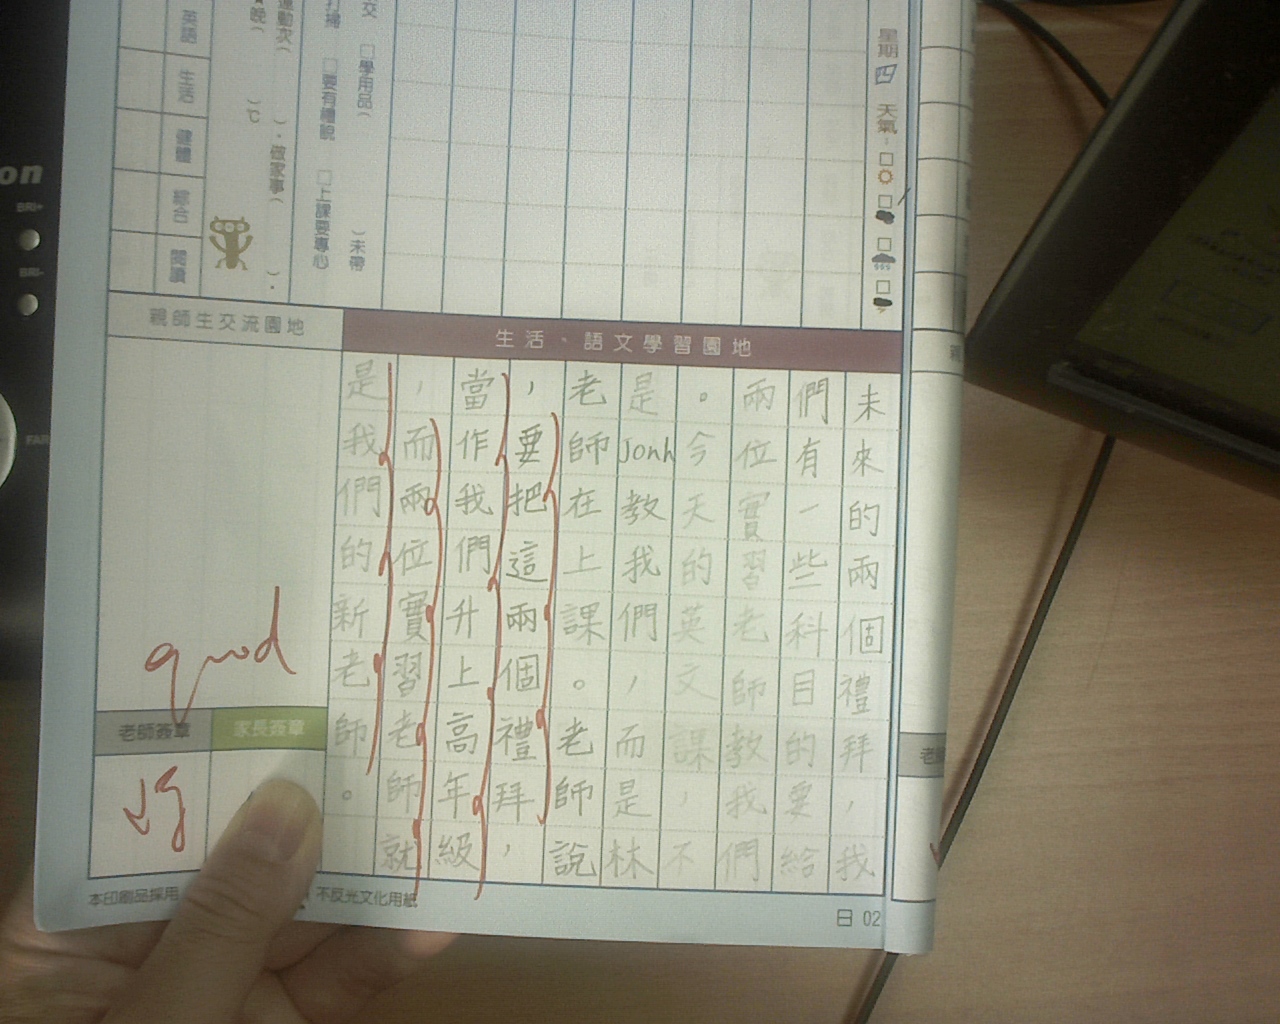 星期四 天氣：
交 □學用品( )未帶
打掃 □要有禮貌 □上課要專心
運動次( )．做家事( )．
★晚( )℃
英語
生活
健體
綜合
閱讀
生活、語文學習園地
未來的兩個禮拜，我
們有一些科目的要給
兩位實習老師教我們
。今天的英文課，不
是Jonh教我們，而是林
老師在上課。老師說
，要把這兩個禮拜，
當作我們升上高年級
，而兩位實習老師就
是我們的新老師。
親師生交流園地
good
老師簽章
家長簽章
本印刷品採用
不反光文化用紙
日 02
on
BRI+
BRI-
FAR